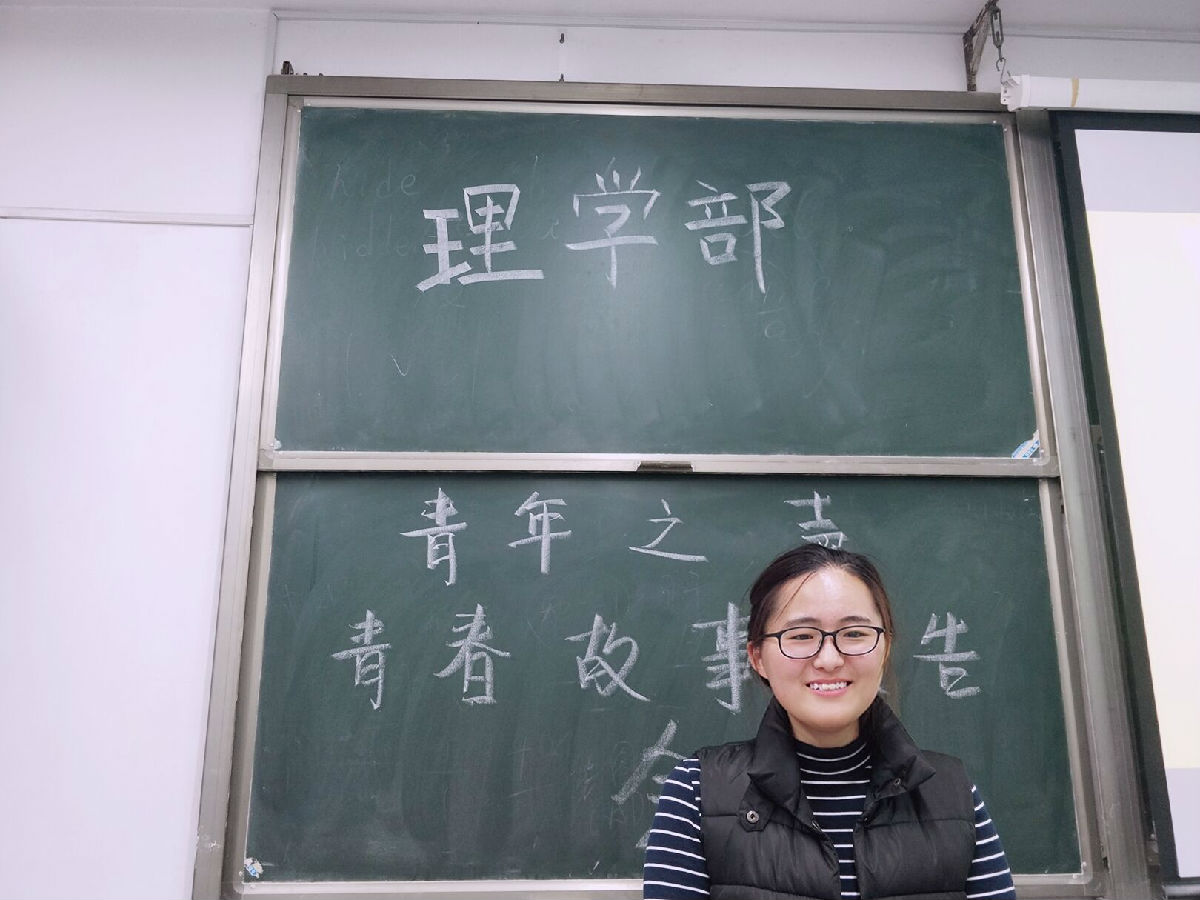 理学部
青年之声
青春故事告
会